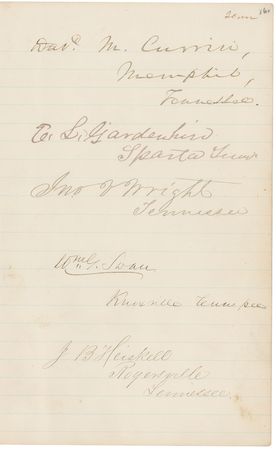 Tenn
161
Dav.d M. Currin,
Memphis,
Tennessee.
E. L. Gardenhire
Sparta Tenn
Jno V Wright
Tennessee
Wm. G. Swan
Knoxville Tennessee
J B Heiskell
Rogersville
Tennessee